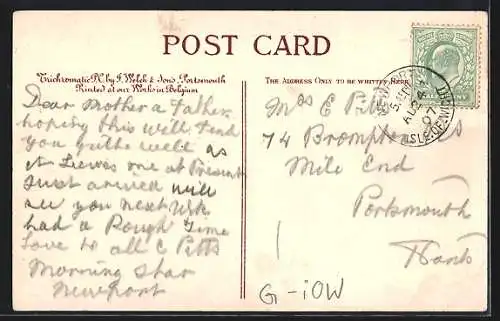 POST CARD
Trichromatic P.C. by F. Welch & Sons, Portsmouth
Printed at our Works in Belgium
THE ADDRESS ONLY TO BE WRITTEN HERE
Dear Mother a Father
hoping this will find
you quite well as
it Leaves one at Present
Just arived will
see you next Wk
had a Rough Time
Love to all C Pitts
Morning Star
Newport
Mrs E Pitts
74 Brompton Rd
Mile End
Portsmouth
Hants
NEWPORT
AU 24
07
ISLE-OF-WIGHT
G-IOW